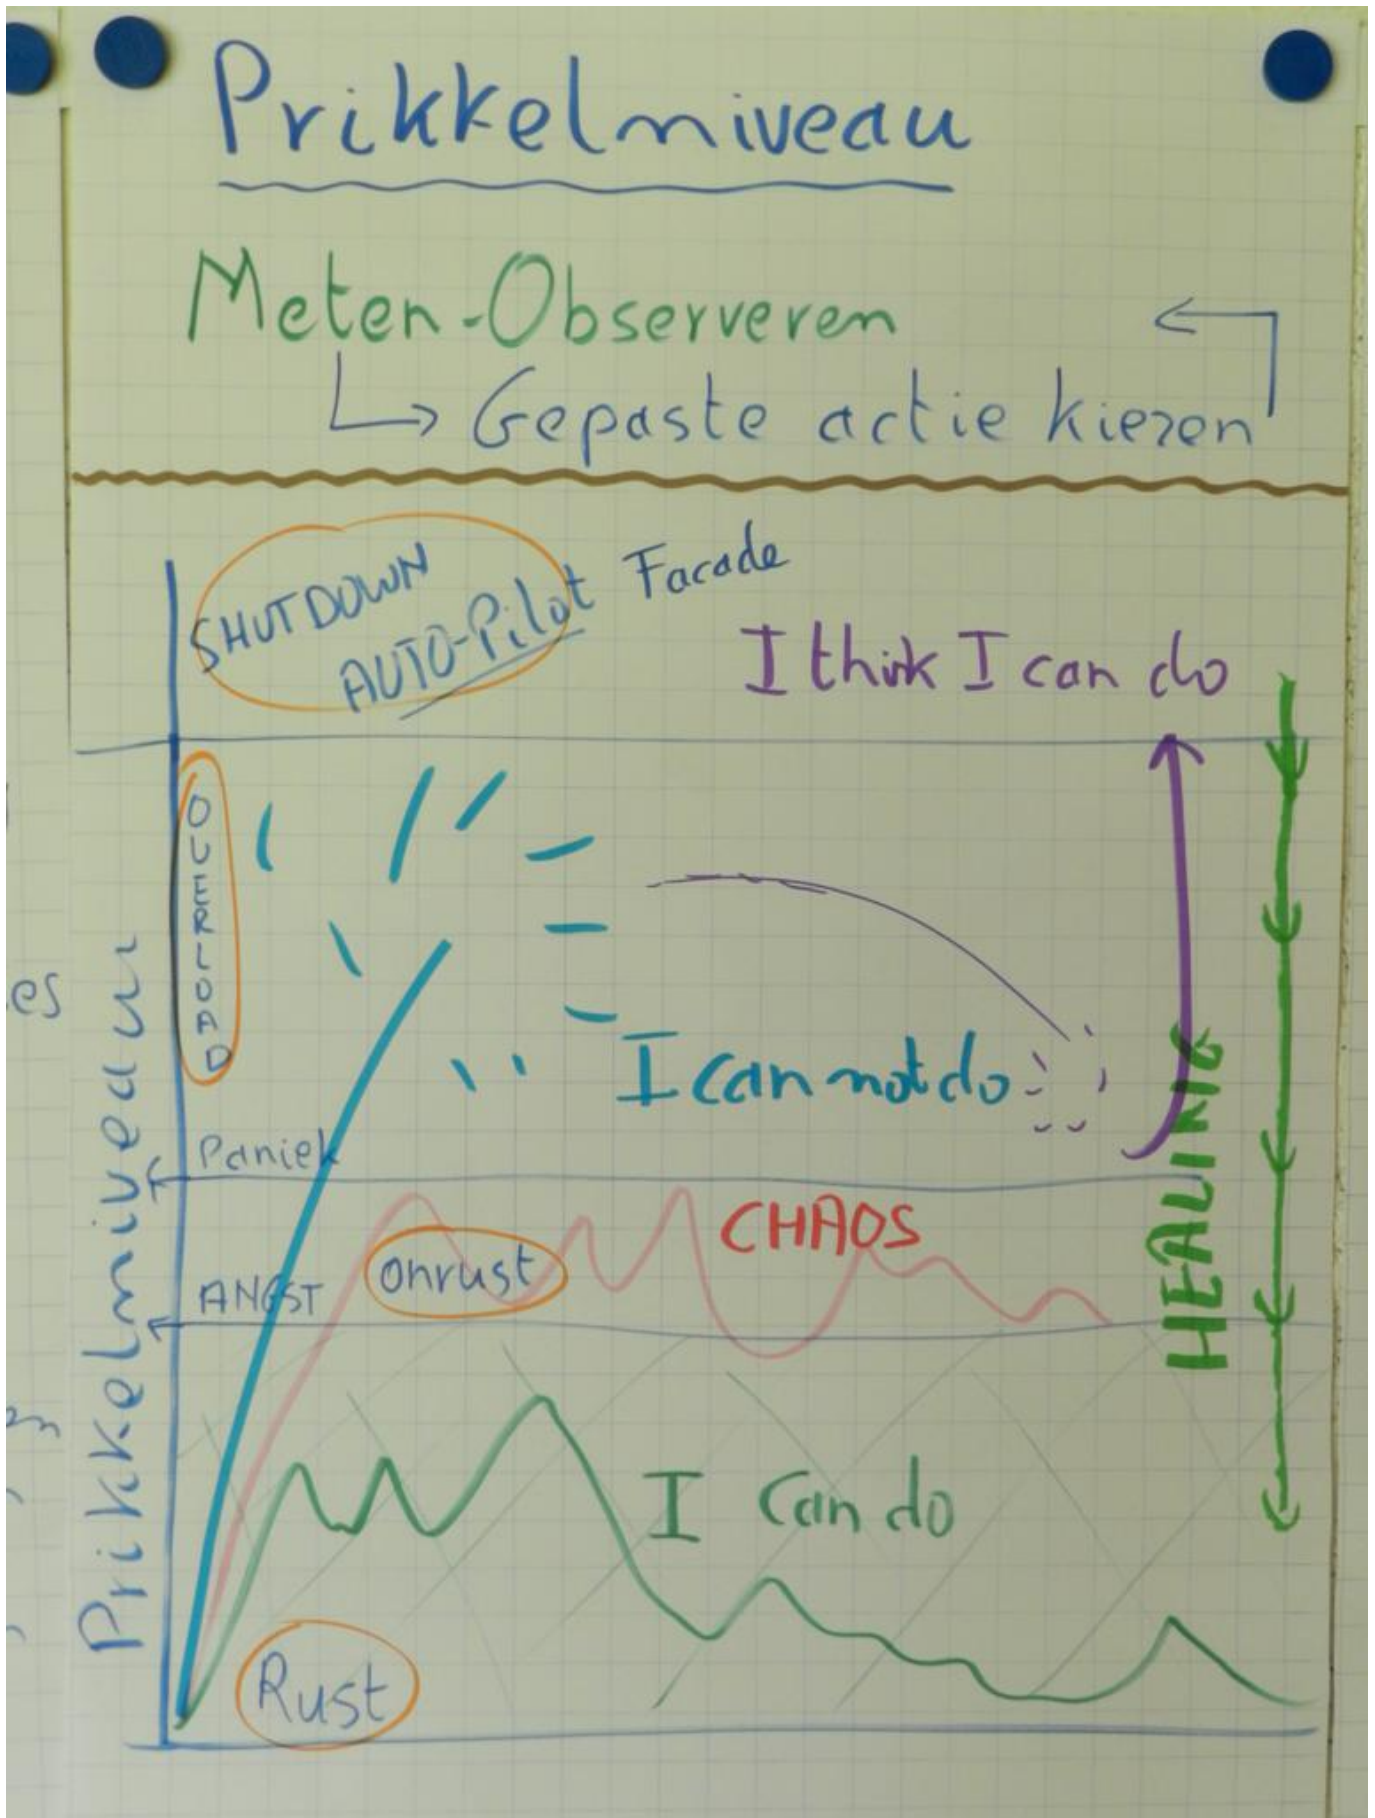 Prikkelniveau
Meten-Observeren
Gepaste actie kiezen
SHUTDOWN
AUTO-Pilot Facade
I think I can do
OVERLOAD
I can not do
Paniek
CHAOS
Onrust
ANGST
HEALING
Prikkelniveau
I can do
Rust
es